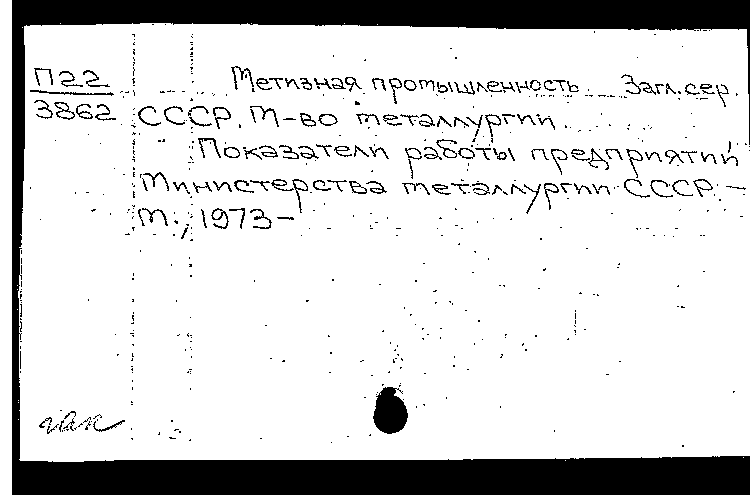 П22 Метизная промышленность. Загл. сер.
3862 СССР. М-во металлургии.
Показатели работы предприятий
Министерства металлургии СССР. –
М., 1973–